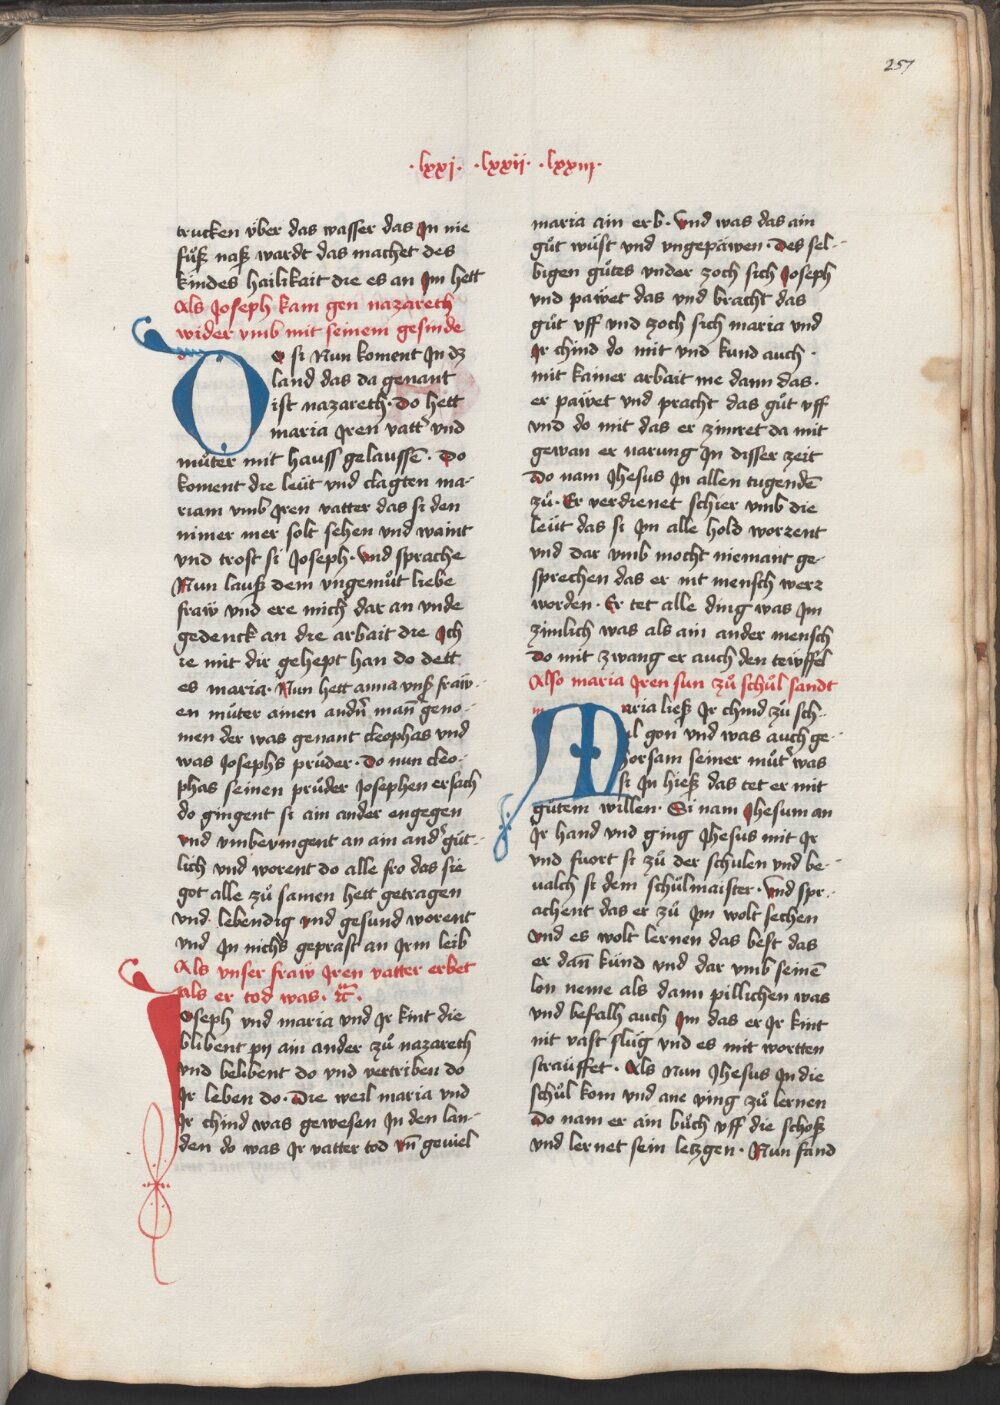 257
·lxxj· ·lxxii· ·lxxiij·
trucken über das wasser das In nie
fůß naß wardt das machet des
kindes hailikait die es an Im hett
Als Joseph kam gen nazareth
wider vmb mit seinem gesinde
Do si Nun koment In dz
land das da genant
ist nazareth· Do hett
maria Jren vattˀ vnd
můter mit hauss gelaussē· Do
koment die leüt vnd clagten ma-
riam vmb Jren vatter das si den
nimer mer solt sehen vnd waint
vnd trost si Joseph· Vnd sprache
Nun lauß dem vngemůt liebe
fraw vnd ere mich dar an vnde
gedenck an die arbait die Ich
ie mit dir gehept han do dett
es maria· Nun hett anna vnß fraw-
en můter ainen andn̄ man̄ geno-
men der was genant cleophas vnd
was Josephs průder· Do nun cleo-
phas seinen průder Josephen ersach
do gingent si ain ander engegen
vnd vmbevingent an ain andˀ gůt-
lich vnd worent do alle fro das sie
got alle zů samen hett getragen
vnd lebendig vnd gesund worent
vnd In nichs geprast an Irm leib
Als vnser fraw Jren vatter erbet
Als er tod was· ꝛc·
Joseph vnd maria vnd Jr kint die
blibent py ain ander zů nazareth
vnd belibent do vnd vertriben do
Jr leben do· Die weil maria vnd
Jr chind was gewesen In den lan-
den do was Jr vatter tod vn̄ geviel
maria ain erb· Vnd was das ain
gůt wüst vnd vngepäwen· Des sel-
bigen gůtes vnder zoch sich Joseph
vnd pawet das vnd bracht das
gůt vff vnd zoch sich maria vnd
Jr chind do mit vnd kund auch·
mit kainer arbait me dann das·
er päwet vnd pracht das gůt vff
vnd do mit das er zimret da mit
gewan er narung In disser zeit
Do nam Jhesus In allen tugendē
zů· Er verdienet schier vmb die
leüt das si Im alle hold worzent
vnd dar vmb mocht niemant ge-
sprechen das er nit mensch werz
worden· Er tet alle ding was Im
zimlich was als ain ander mensch
Do mit zwang er auch den tewffel
Also maria Jren sun zů schůl sandt
Maria ließ Jr chind zů sch-
ůl gon vnd was auch ge-
horsam seiner můtˀ was
si In hieß das tet er mit
gůtem willen· Si nam Jhesum an
Jr hand vnd ging Jhesus mit Jr
vnd fuort si zů der schulen vnd be-
valch si dem schůlmaister· Vnd spr-
achent das er zů Im wolt sechen
Vnd es wolt lernen das best das
er dan̄ künd vnd dar vmb seinē
lon neme als dann pillichen was
vnd befalh auch Im das er Jr kint
nit vast slůg vnd es mit wortten
sträuffet· Als Nun Jhesus In die
schůl kom vnd ane ving zů lernen
Do nam er ain bůch vff die schoß
vnd lernet sein letzgen· Nun fand